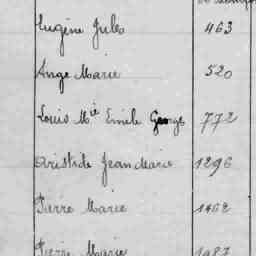 Eugène Jules 463
Ange Marie 520
Louis Mie Emile George 772
Aristide Jean Marie 1296
Pierre Marie 1462
Pierre Marie 1987